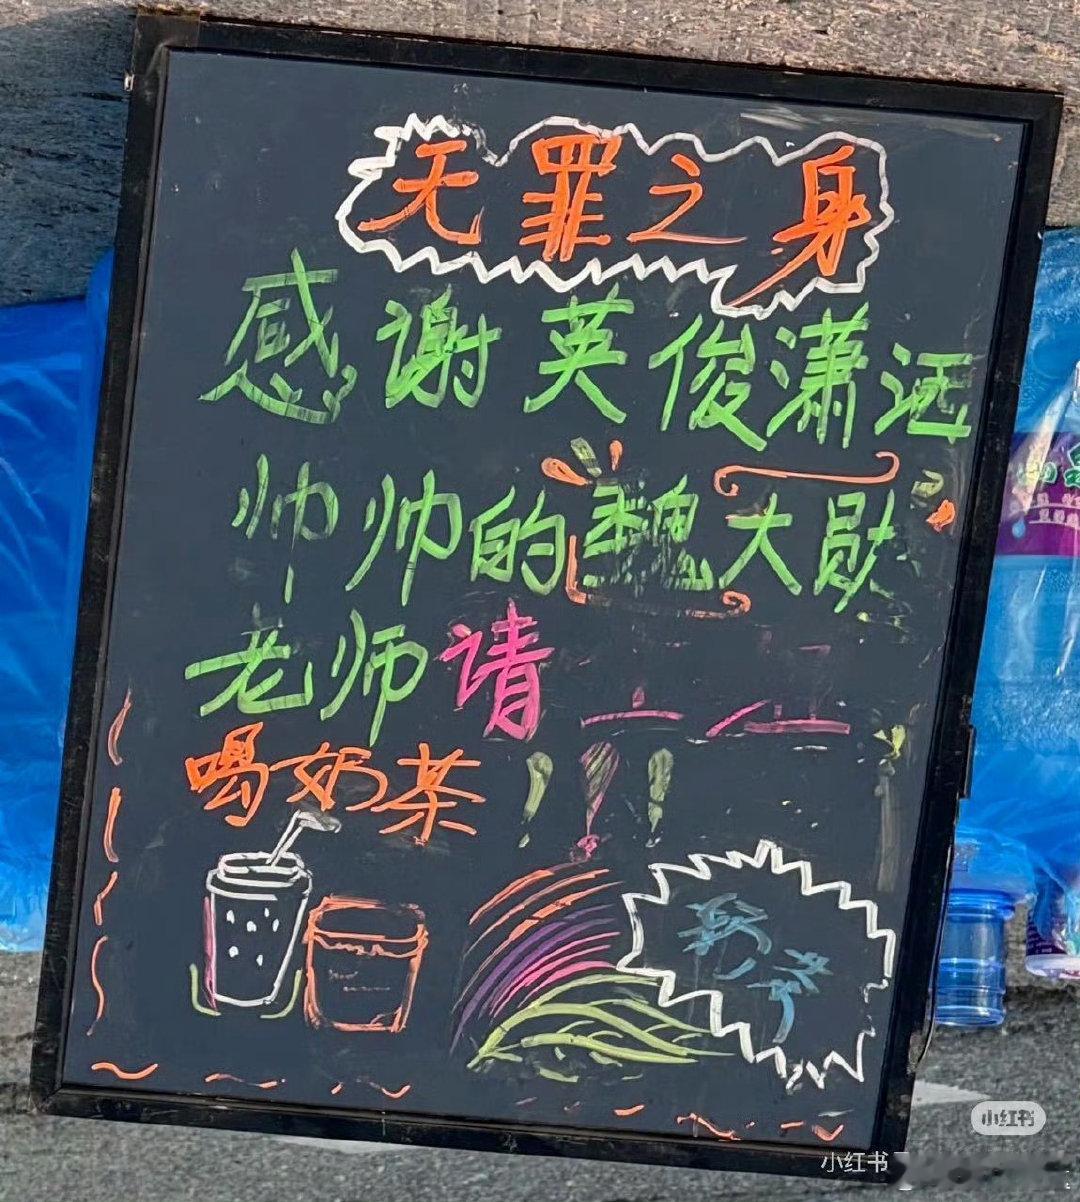 无罪之身
感谢英俊潇洒
帅帅的魏大勋
老师请
喝奶茶!!!
小红书
小红书